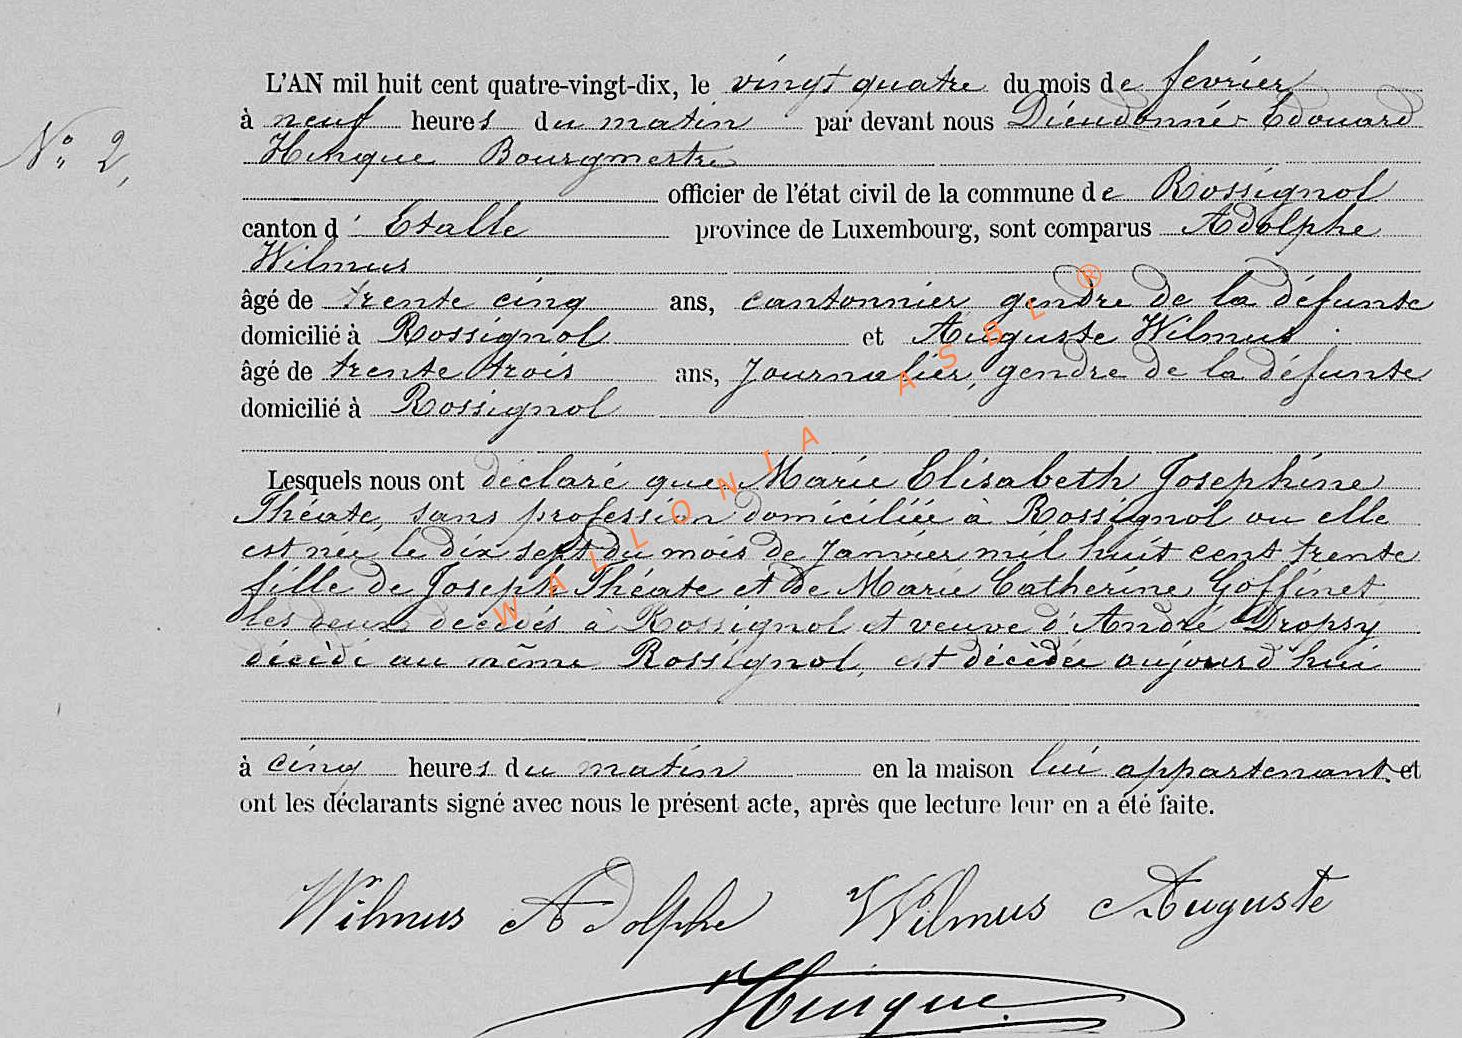 L'AN mil huit cent quatre-vingt-dix, le vingt quatre du mois de fevrier
à neuf heures du matin par devant nous Dieudonné Edouard
N° 2, Hinque Bourgmestre
officier de l'état civil de la commune de Rossignol
canton d' Etalle province de Luxembourg, sont comparus Adolphe
Wilmus
âgé de trente cinq ans, cantonnier, gendre de la défunte
domicilié à Rossignol et Auguste Wilmus
âgé de trente trois ans, Journalier, gendre de la défunte
domicilié à Rossignol
Lesquels nous ont déclaré que Marie Elisabeth Josephine
Théate, sans profession domiciliée à Rossignol ou elle
est née le dix sept du mois de Janvier mil huit cent trente
fille de Joseph Théate et de Marie Catherine Goffinet
les deux decédés à Rossignol et veuve d'André Dropsy
décèdé au même Rossignol, est décèdée aujourd'hui
à cinq heures du matin en la maison lui appartenant, et
ont les déclarants signé avec nous le présent acte, après que lecture leur en a été faite.
Wilmus Adolphe Wilmus Auguste
Hinque
WALLONIA ASBL ®